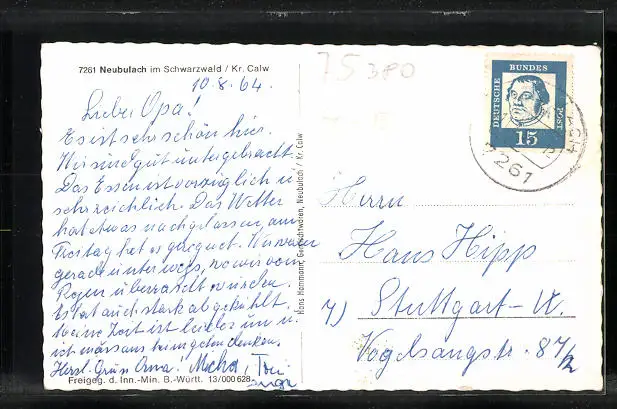 7261 Neubulach im Schwarzwald / Kr. Calw
10.8.64.
Lieber Opa!
Es ist sehr schön hier.
Wir sind gut untergebracht.
Das Essen ist vorzüglich u.
sehr reichlich. Das Wetter
hat etwas nachgelassen, am
Freitag hat es geregnet. Wir waren
gerade unterwegs, wo wir vom
Regen überrascht wurden.
Es hat auch stark abgekühlt.
Meine Zeit ist leider um u.
ich muss ans heimgehen denken.
Herzl. Grüße Oma.
Freigeg. d. Inn.-Min. B.-Württ. 13/000 628
Hans Hammann, Gemischtwaren, Neubulach / Kr. Calw
75 380
DEUTSCHE BUNDES POST
15
7261
Herrn
Hans Hipp
7) Stuttgart-W.
Vogelsangstr. 87/2